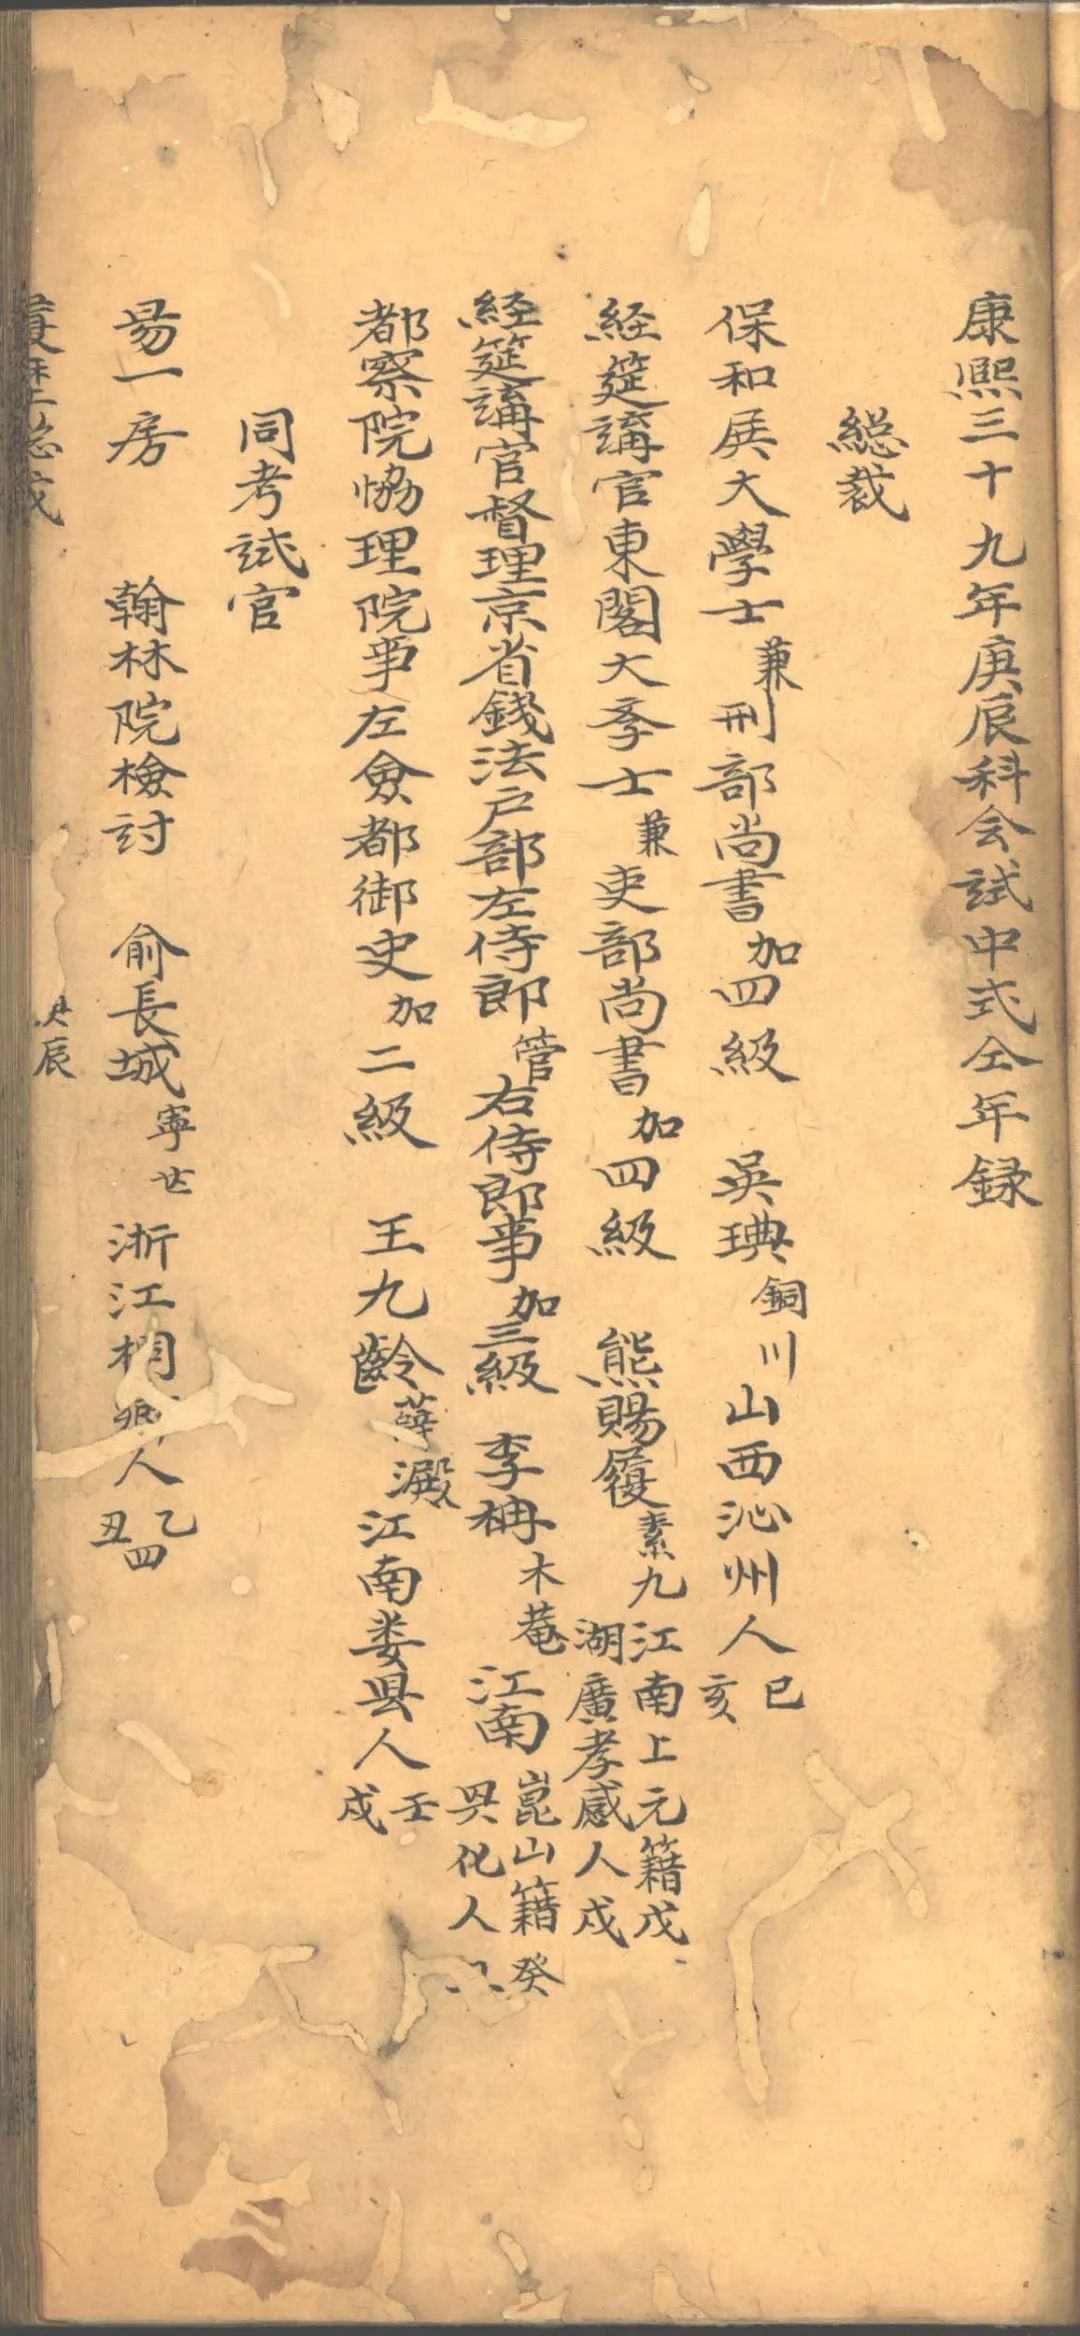 康熙三十九年庚辰科会試中式仝年録
総裁
保和殿大學士兼刑部尚書加四級 吳琠銅川山西沁州人己亥
経筵講官東閣大季士兼吏部尚書加四級 熊賜履素九江南上元籍湖廣孝感人戊戌
経筵講官督理京省錢法户部左侍郎管右侍郎事加三級 李柟木菴江南崑山籍興化人癸
都察院恊理院事左僉都御史加二級 王九齡薛澱江南娄县人壬戌
同考試官
易一房 翰林院檢討 俞長城寧世浙江桐鄉人乙丑四
履歴総裁 庚辰